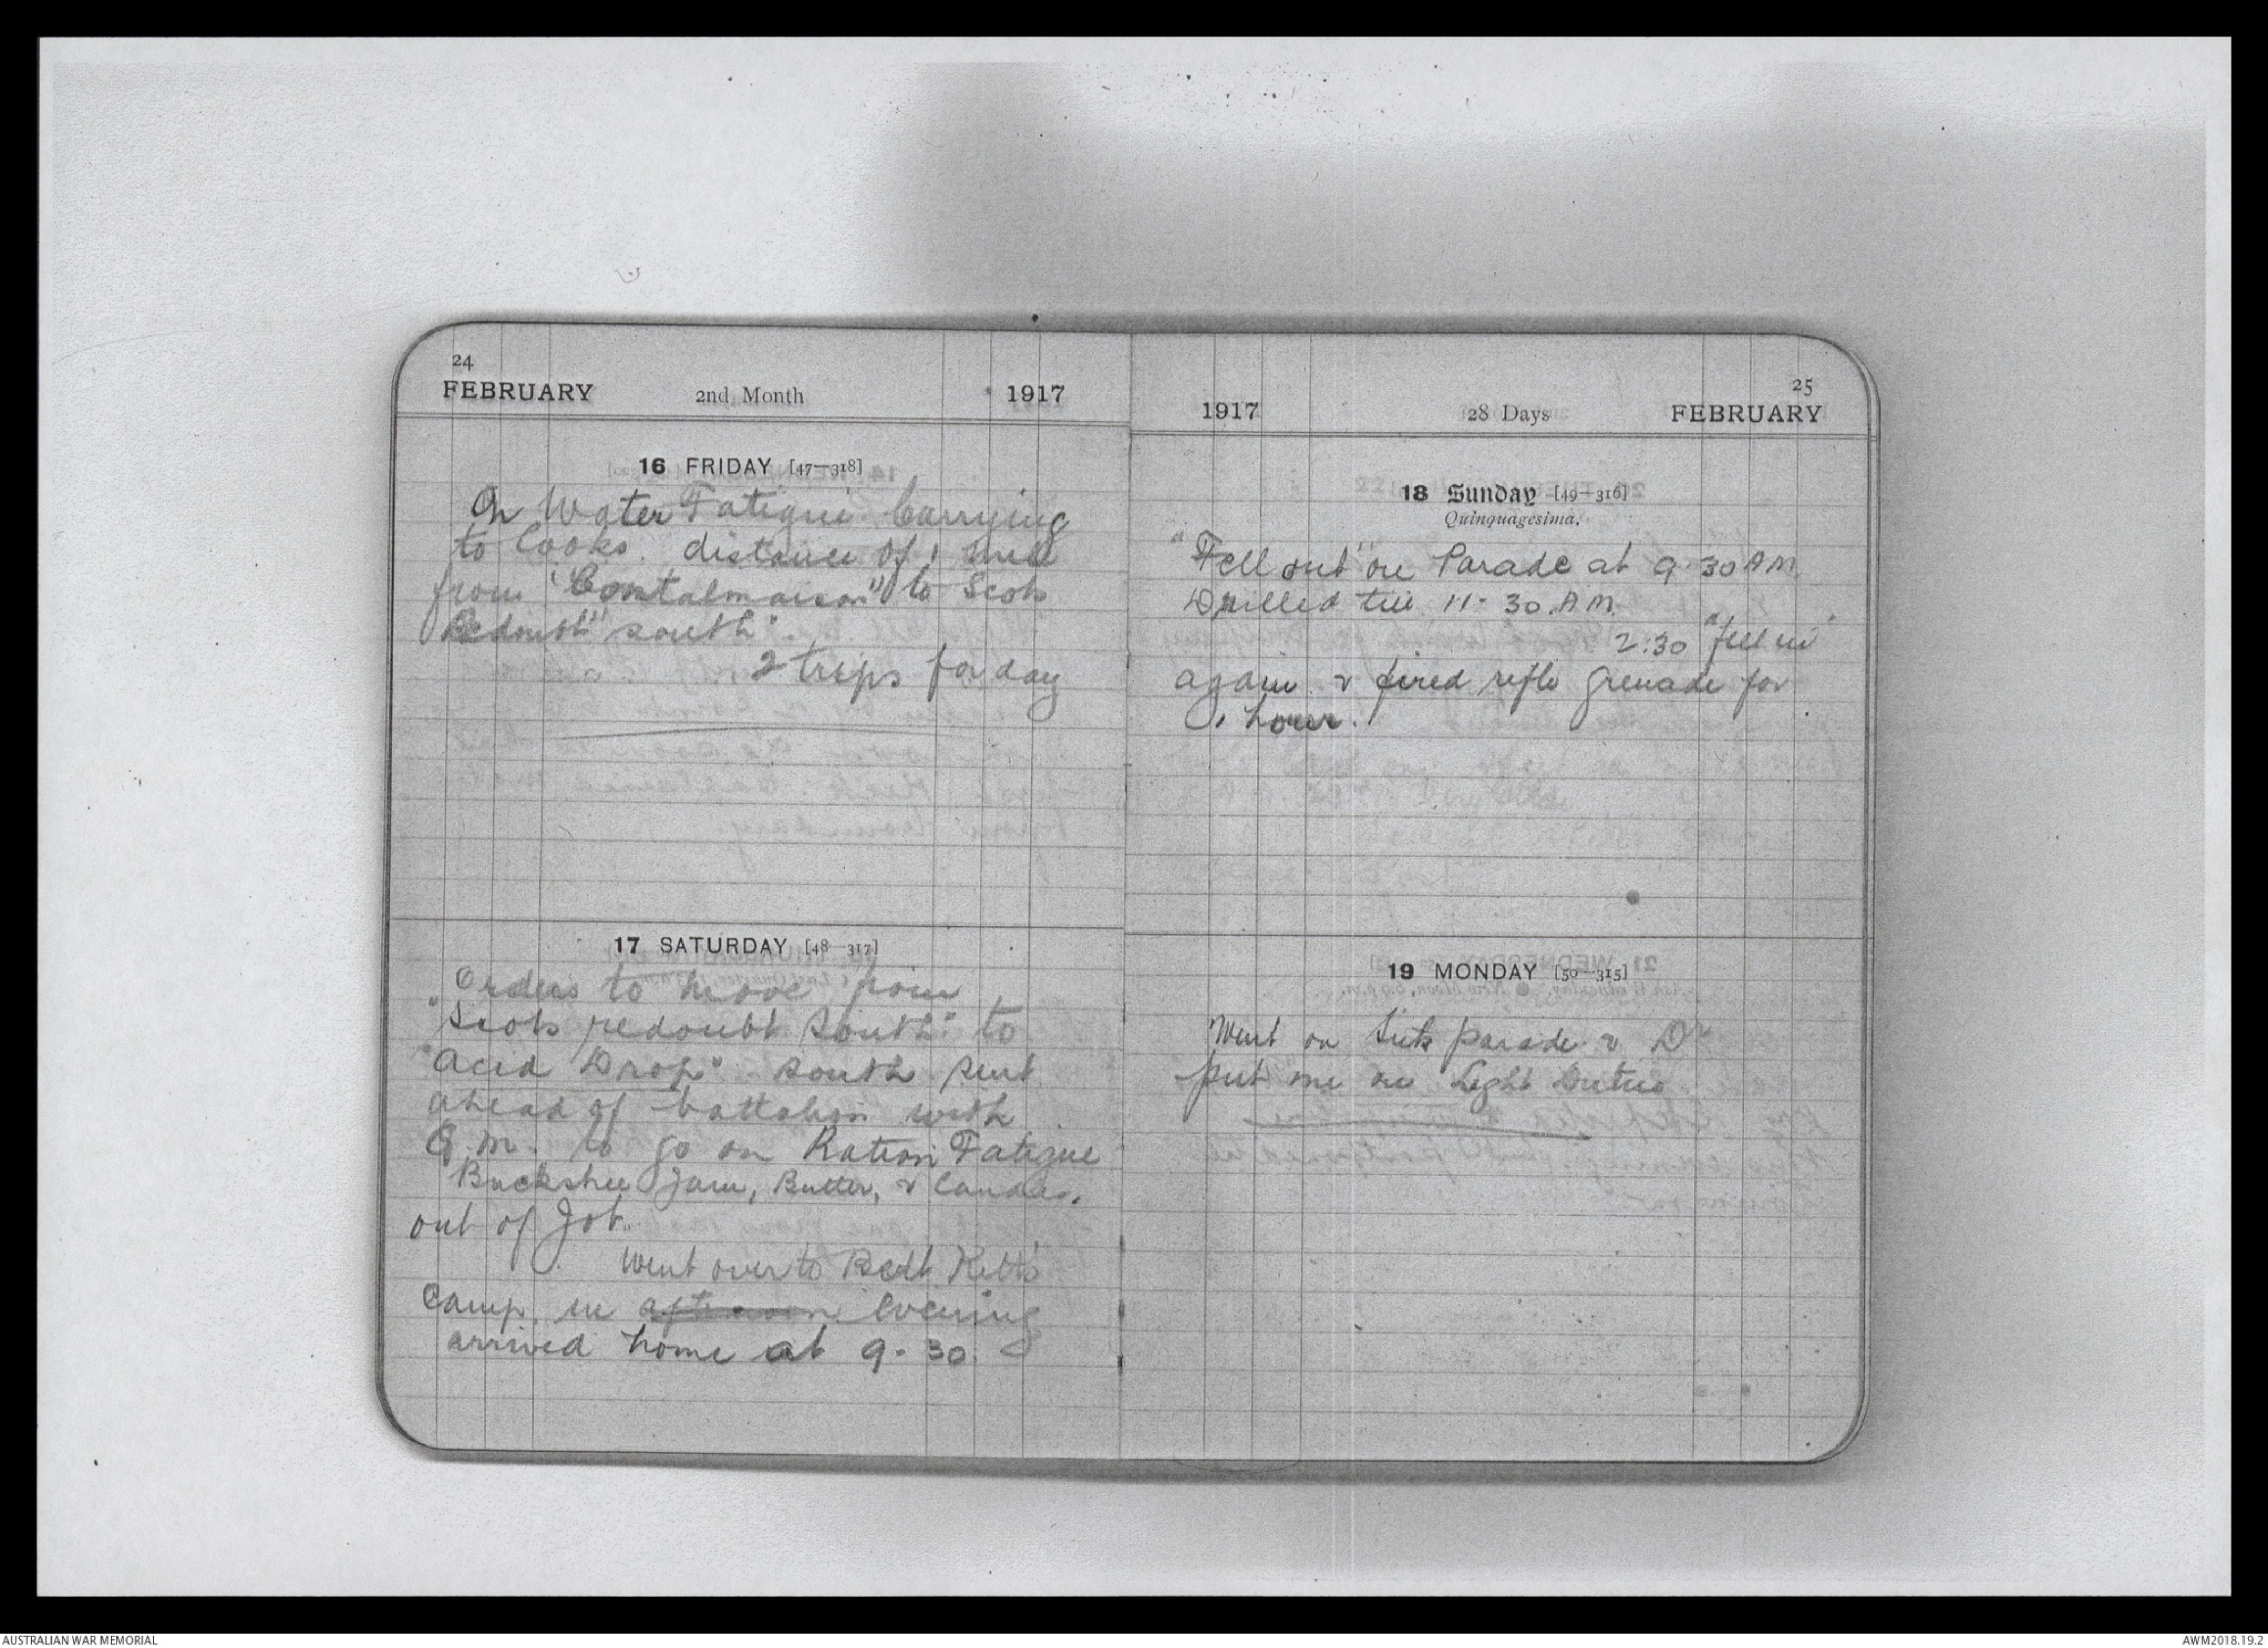 24
FEBRUARY 2nd Month 1917
16 FRIDAY [47—318]
On Water Fatigue Carrying
to Cooks. distance of 1 mile
from "Contalmaison" to Scots
Redoubt" south".
2 trips for day
17 SATURDAY [48—317]
Orders to move from
"Scots redoubt South" to
"Acid Drop" south sent
ahead of battalion with
Q.M. to go on Ration Fatigue
Buckshee Jam, Butter, & Candles.
out of Job.
Went over to
Camp in afternoon Evening
arrived home at 9.30.
25
1917 28 Days FEBRUARY
18 Sunday [49—316]
Quinquagesima.
"Fell out" on Parade at 9.30 AM.
Drilled till 11-30.AM.
2:30 "fell in"
again & fired rifle grenade for
1 hour.
19 MONDAY [50—315]
Went on Sick parade & Dr
put me on Light Duties
AUSTRALIAN WAR MEMORIAL
AWM2018.19.2